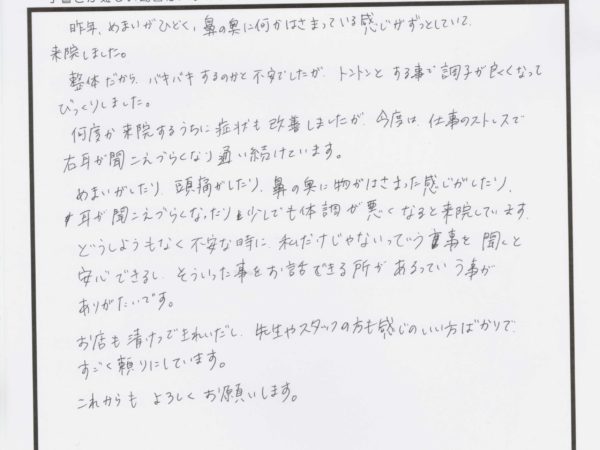 昨年、めまいがひどく、鼻の奥に何かはさまっている感じがずっとしていて、
来院しました。
整体だから、バキバキするのかと不安でしたが、トントンとする事で調子が良くなって
びっくりしました。
何度か来院するうちに症状も改善しましたが、今度は、仕事のストレスで
右耳が聞こえづらくなり通い続けています。
めまいがしたり、頭痛がしたり、鼻の奥に物がはさまった感じがしたり、
耳が聞こえづらくなったり少しでも体調が悪くなると来院しています。
どうしようもなく不安な時に、私だけじゃないっていう事を聞くと
安心できるし、そういった事をお話できる所があるっていう事が
ありがたいです。
お店も清けつできれいだし、先生やスタッフの方も感じのいい方ばかりで
すごく頼りにしています。
これからも よろしくお願いします。